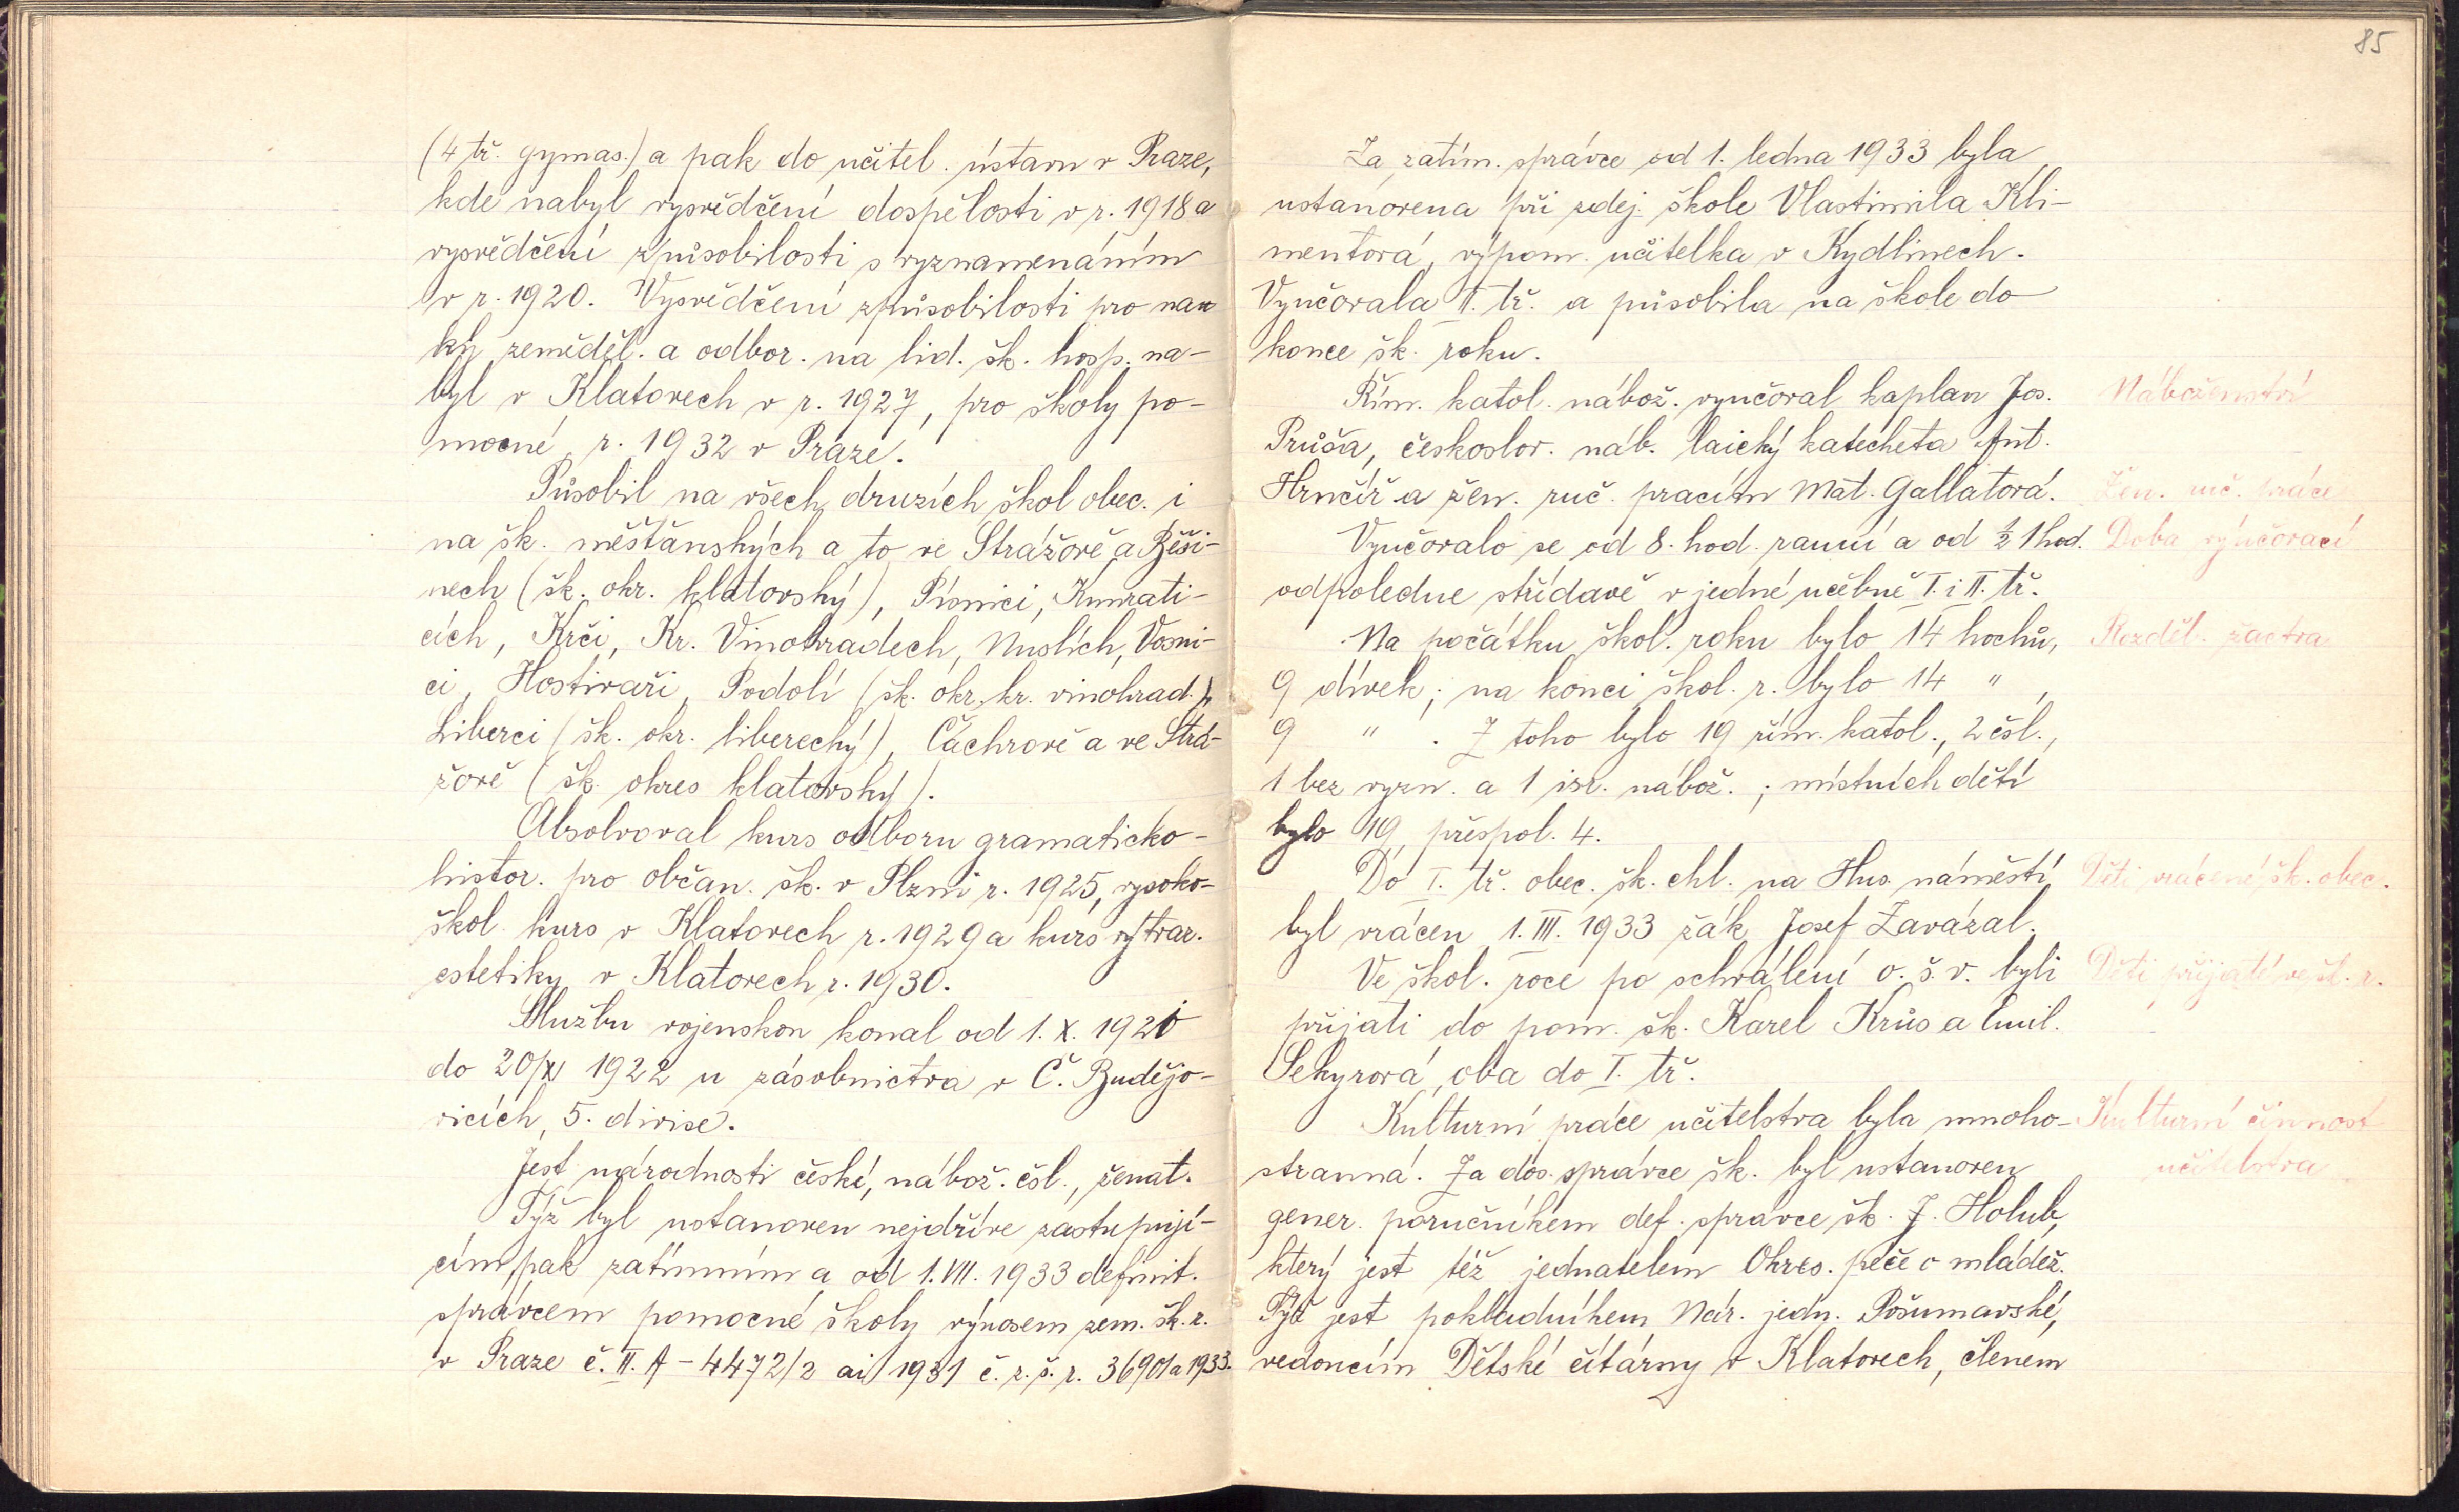 (4 tř. gymas.) a pak do učitel. ústavu v Praze,
kde nabyl vysvědčení dospělosti v r. 1918 a
vysvědčení způsobilosti s vyznamenáním
v r. 1920. Vysvědčení způsobilosti pro nau
ky zeměděl. a odbor. na lid. šk. hosp. na-
byl v Klatovech v r. 1927, pro školy po-
mocné r. 1932 v Praze.
Působil na všech druzích škol obec. i
na šk. měšťanských a to ve Strážově a Běši-
nech (šk. okr. klatovský), Písnici, Kunrati-
cích, Krči, Kr. Vinohradech, Nuslích, Vosni-
ci, Hostivaři, Podolí (šk. okr. kr. vinohrad.),
Liberci (šk. okr. liberecký), Čachrově a ve Strá-
žově (šk. okres klatovský).
Absolvoval kurs odboru gramaticko-
histor. pro občan. šk. v Plzni r. 1925, vysoko-
škol. kurs v Klatovech r. 1929 a kurs výtvar.
estetiky v Klatovech r. 1930.
Službu vojenskou konal od 1. X. 1920
do 20/XI 1922 u zásobnictva v Č. Budějo-
vicích, 5. divise.
Jest národnosti české, nábož. čsl., ženat.
Týž byl ustanoven nejdříve zastupují-
cím, pak zatímním a od 1. VII. 1933 definit.
správcem pomocné školy výnosem zem. šk. r.
v Praze č. II. A - 4472/2 ai 1931 č. z. š. r. 36901 a 1933.
85
Za zatím. správce od 1. ledna 1933 byla
ustanovena při zdej. škole Vlastimila Kli-
mentová, výpom. učitelka v Kydlinech.
Vyučovala II. tř. a působila na škole do
konce šk. roku.
Řím. katol. nábož. vyučoval kaplan Jos. Náboženství
Průša, českoslov. náb. laický katecheta Ant.
Hrnčíř a žen. ruč. pracím Mat. Gallatová. Žen. ruč. práce
Vyučovalo se od 8. hod. ranní a od ½ 1 hod. Doba vyučovací
odpoledne střídavě v jedné učebně I. i II. tř.
Na počátku škol. roku bylo 14 hochů, Rozděl. žactva
9 dívek; na konci škol. r. bylo 14 " ,
9 " . Z toho bylo 19 řím. katol., 2 čsl.,
1 bez vyzn. a 1 isr. nábož.; místních dětí
bylo 19, přespol. 4.
Do I. tř. obec. šk. chl. na Hus. náměstí Děti vrácené šk. obec.
byl vrácen 1. III. 1933 žák Josef Zavázal.
Ve škol. roce po schválení o. š. v. byli Děti přijaté ve šk. r.
přijati do pom. šk. Karel Krůs a Emil.
Sekyrová, oba do I. tř.
Kulturní práce učitelstva byla mnoho- Kulturní činnost
stranná. Za dos. správce šk. byl ustanoven učitelstva
gener. poručníkem def. správce šk. J. Holub,
který jest též jednatelem Okres. péče o mládež.
Týž jest pokladníkem Nár. jedn. Pošumavské,
vedoucím Dětské čítárny v Klatovech, členem